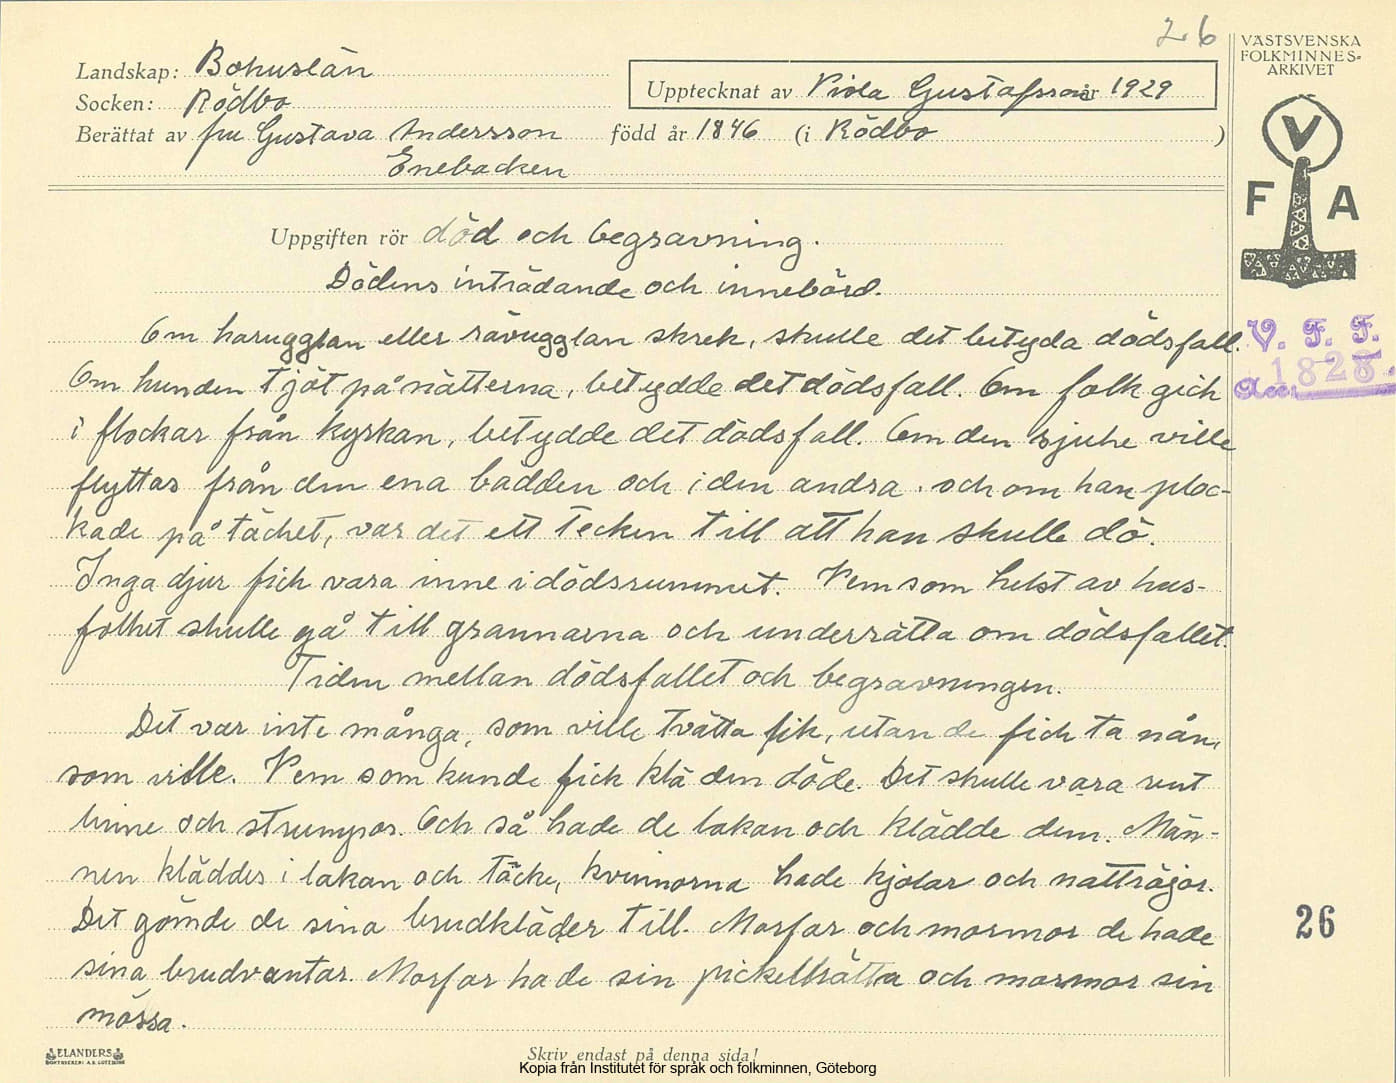 26
VÄSTSVENSKA
FOLKMINNES-
ARKIVET
Landskap: Bohuslän
Socken: Rödbo
Upptecknat av Viola Gustafsson år 1929
Berättat av fru Gustava Andersson född år 1846 (i Rödbo )
Enebacken
V
F A
Uppgiften rör död och begravning.
Dödens inträdande och innebörd.
Om harugglan eller rävugglan skrek, skulle det betyda dödsfall.
V. F. F.
Om hunden tjöt på nätterna, betydde det dödsfall. Om folk gick
Acc. 1828
i flockar från kyrkan, betydde det dödsfall. Om den sjuke ville
flyttas från den ena bädden och i den andra och om han ploc-
kade på täcket, var det ett tecken till att han skulle dö.
Inga djur fick vara inne i dödsrummet. Vem som helst av hus-
folket skulle gå till grannarna och underrätta om dödsfallet.
Tiden mellan dödsfallet och begravningen.
Det var inte många, som ville tvätta lik, utan de fick ta nån,
som ville. Vem som kunde fick klä den döde. Det skulle vara rent
linne och strumpor. Och så hade de lakan och klädde dem. Män-
nen kläddes i lakan och täcke, kvinnorna hade kjolar och nattröjor.
Det gömde de sina brudkläder till. Morfar och mormor de hade
26
sina brudvantar. Morfar hade sin pickelhätta och mormor sin
mössa.
ELANDERS
BOKTRYCKERI A.B. GÖTEBORG
Skriv endast på denna sida!
Kopia från Institutet för språk och folkminnen, Göteborg